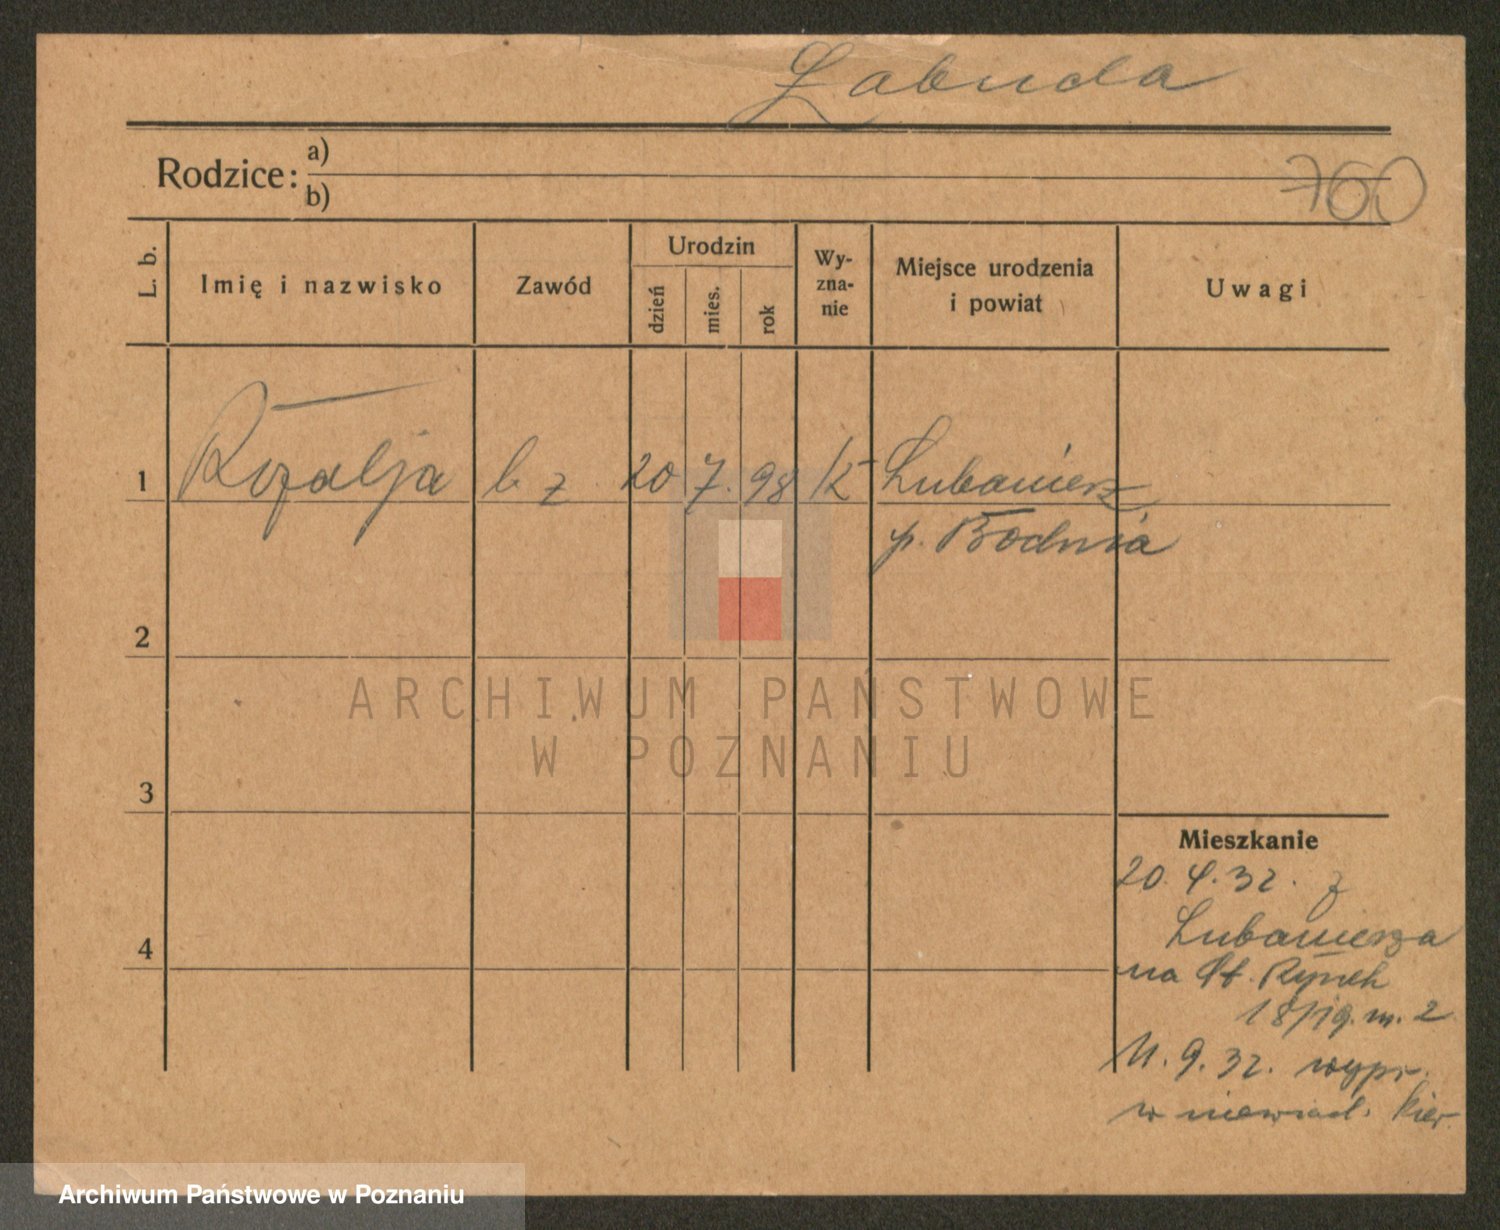 Łabuda
Rodzice:
a)
b)
760
L. b.
Imię i nazwisko
Zawód
Urodzin
dzień
mies.
rok
Wy-
zna-
nie
Miejsce urodzenia
i powiat
Uwagi
1 Rozalja b z 20 7. 98 K Lubawiesz
p. Bodnia
2
ARCHIWUM PAŃSTWOWE
W POZNANIU
3
Mieszkanie
20. 4. 32. z
Lubaniesza
4
na St. Rynek
18/19. m. 2
11. 9. 32. wypr.
w niewiad. kier.
Archiwum Państwowe w Poznaniu